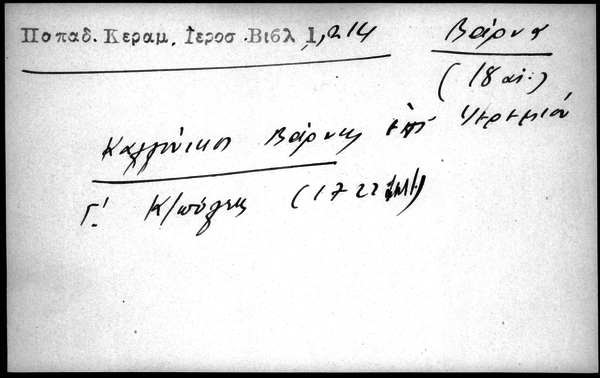 Παπαδ. Κεραμ. Ιεροσ. Βιβλ 1, 214
Βάρνα
(18 αι.)
Καλλίνικος Βάρνης επί Ιερεμίου
Γ΄ Κ/πόλεως (1722